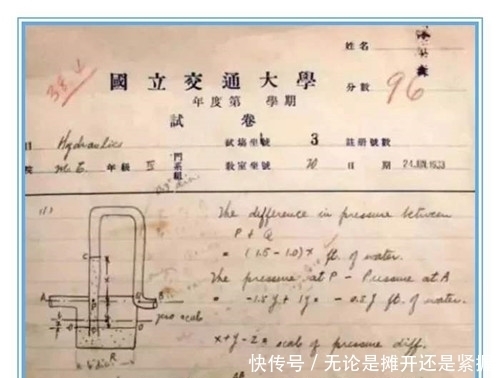 姓名
國立交通大學
分數 96
年度第 學期
試卷
目 Hydraulics 試場坐號 3 註冊號數
院 M.E. 年級 III 門系組 教室坐號 70 日期 24 1933
(1) The difference in pressure between
P & Q
= (1.5 - 1.0) x ft. of water.
The pressure at P - Pressure at A
= -1.5y + 1y = -0.5y ft. of water.
zero scale
x + y - z = scale of pressure diff.
快传号/无论是摊开还是紧握